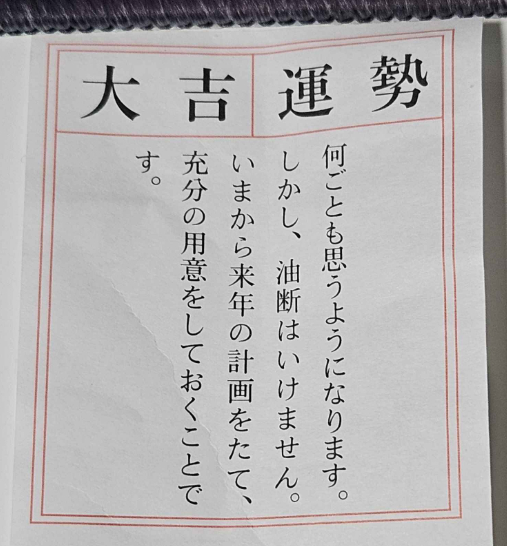 大吉
運勢
何ごとも思うようになります。
しかし、油断はいけません。
いまから来年の計画をたて、
充分の用意をしておくことで
す。